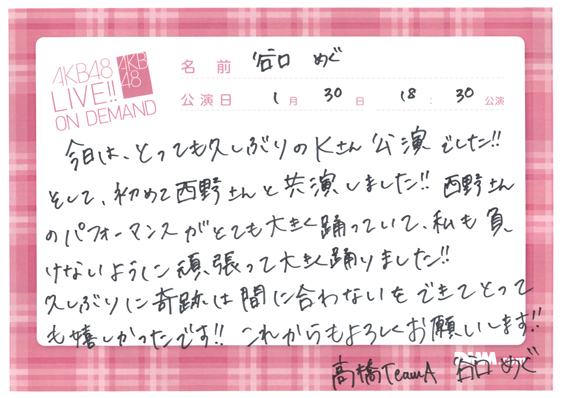 AKB48
LIVE!!
ON DEMAND
AKB
48
名前 谷口 めぐ
公演日 1月 30日 18:30公演
今日は、とっても久しぶりのKさん公演でした!!
そして、初めて西野さんと共演しました!! 西野さん
のパフォーマンスがとても大きく踊っていて、私も負
けないように頑張って大きく踊りました!!
久しぶりに奇跡は間に合わないをできてとって
も嬉しかったです!! これからもよろしくお願いします!!
高橋TeamA 谷口 めぐ